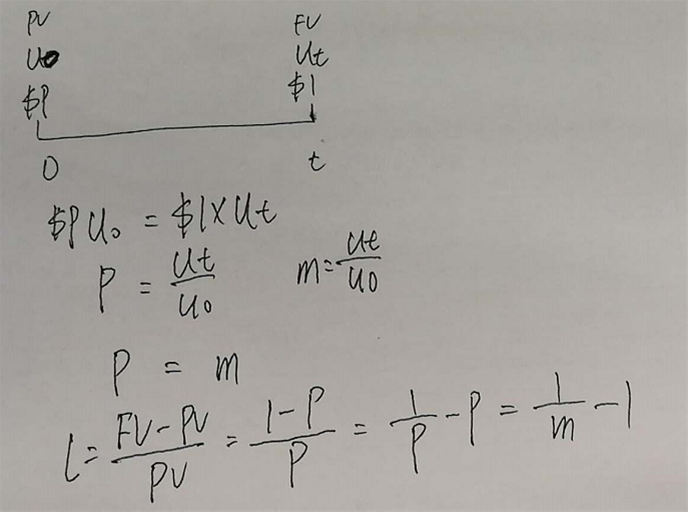 PV FV
U0 Ut
$P $1
0 t
$P U0 = $1 × Ut
P = Ut/U0 m = Ut/U0
P = m
i = (FV - PV)/PV = (1 - P)/P = 1/P - P = 1/m - 1